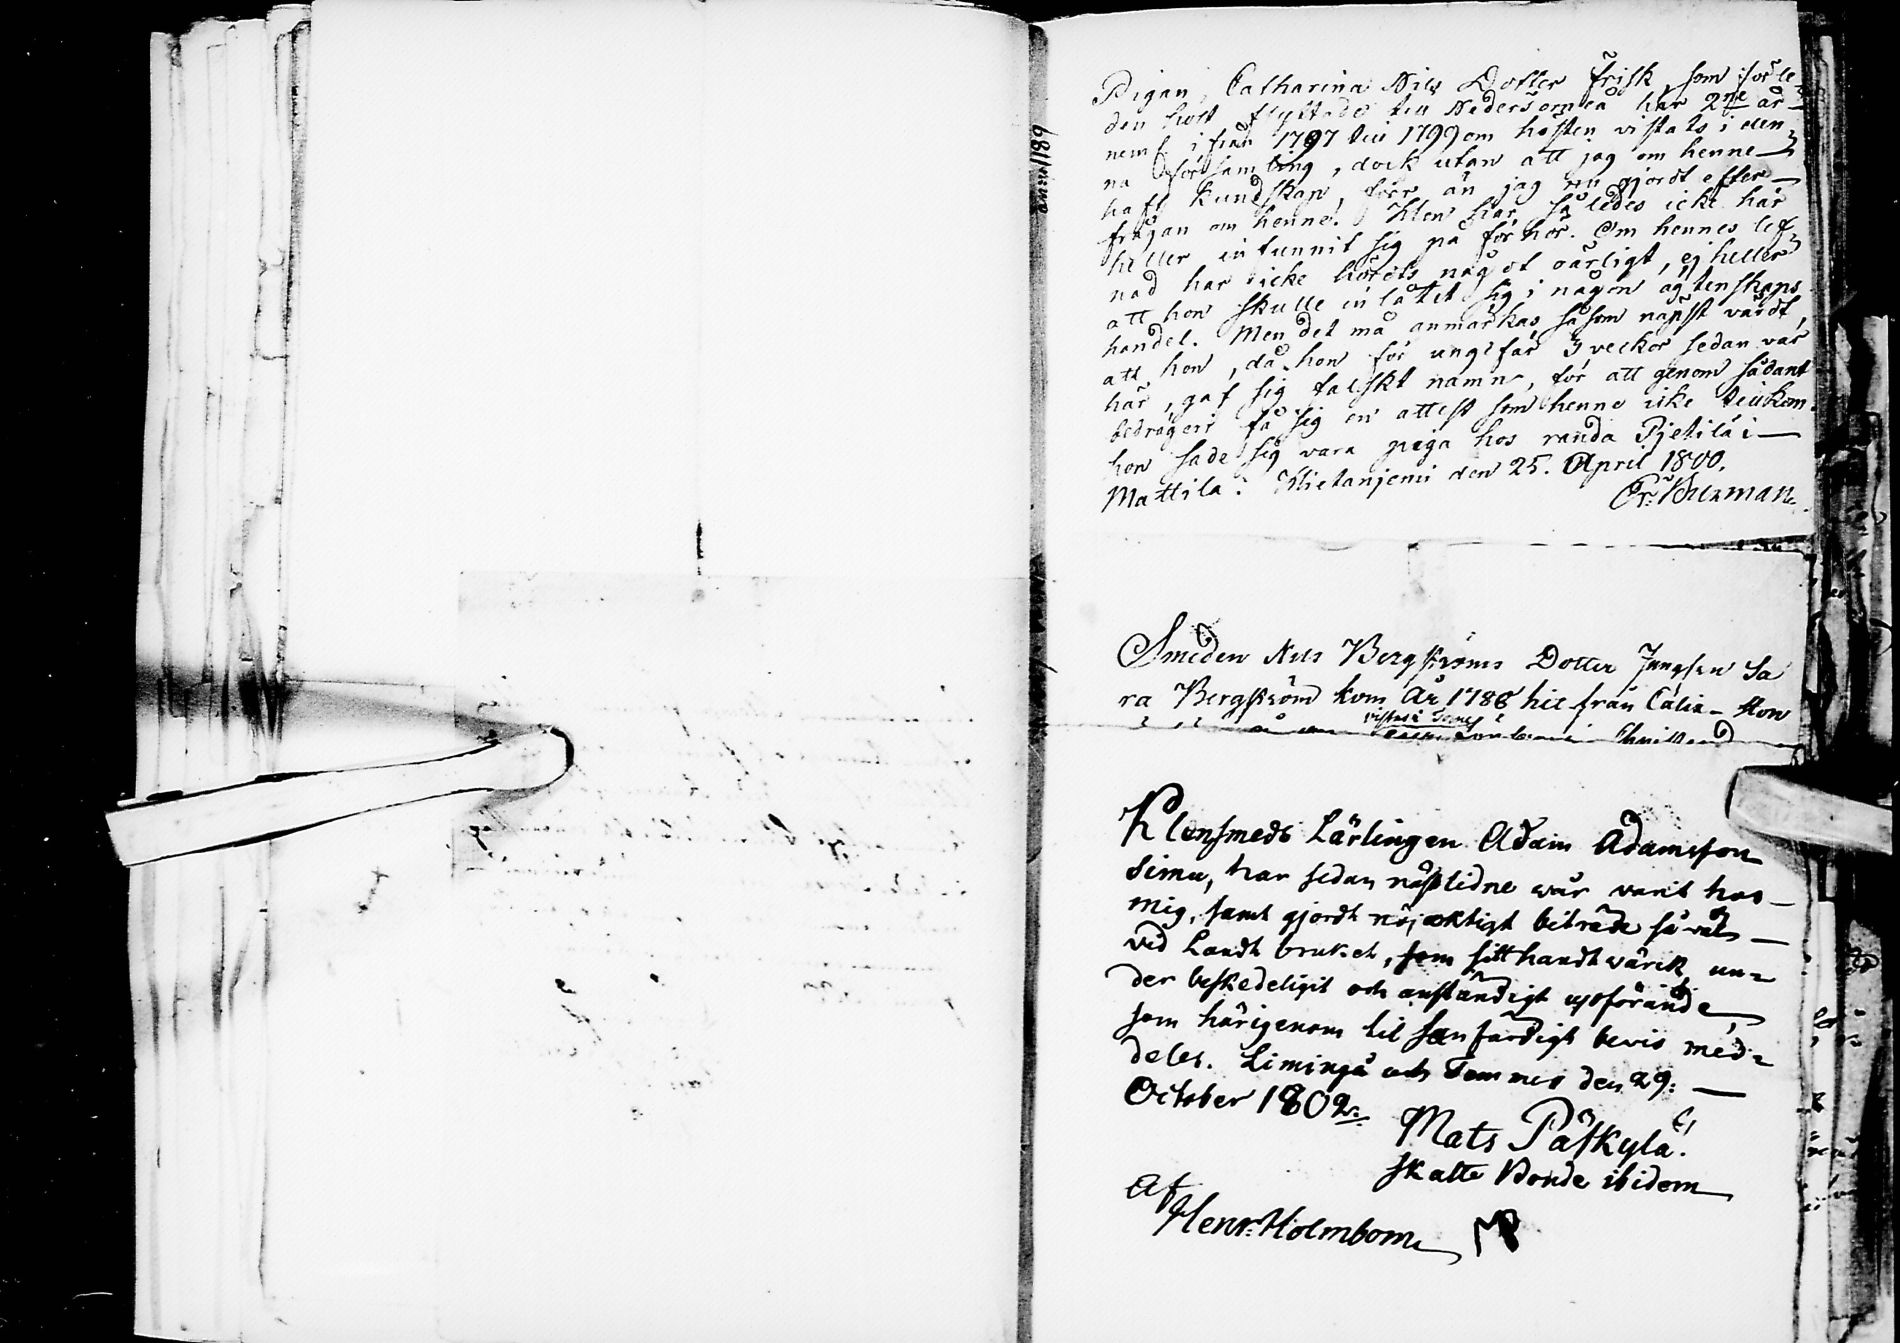 Pigan, Catharina Nils Dotter Frisk, som förle
den höst flyttade till Nedertorneå har 2ne år
neml. ifrån 1797 till 1799 om hösten vistats i den
na församling, dock utan att jag om henne
haft kundskap, förr än jag nu gjordt efter
frågan om henne. Hon har således icke här
heller infunnit sig på förhör. Om hennes lef
nad har icke hördts någodt oärligt, ej heller
att hon skulle inlåtit sig i någon ägtenskaps
handel. Men det må anmärkas, såsom näpst värdt,
att hon, då hon för ungefär 3 veckor sedan var
här, gaf sig falskt namn, för att genom sådant
bedrägeri få sig en attest som henne icke tillkom.
hon sade sig vara piga hos randa Pjetilä i
Mattila. Hietaniemi den 25. April 1800.
Er. Burman.
Smeden Nils Bergströms Dotter Jungfrun Sa
ra Bergström kom År 1788 hit från Calix. Hon
Klensmeds Lärlingen Adam Adamsson
Simu, har sedan nästlidne wår varit hos
mig, samt gjordt nöjaktigt biträde så väl
vid Landtbruket, som sitt handtwärck, un=
der beskedeligit och anständigt upförande,
som härigenom til sanfärdigt bevis med=
deles. Limingå och Temmes den 29:
October 1802.
Mats Päfkylä.
Skatte Bonde ibidem
Af
Henr. Holmbom MP